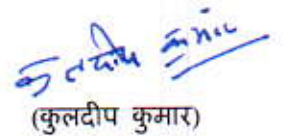 कुलदीप कुमार
(कुलदीप कुमार)